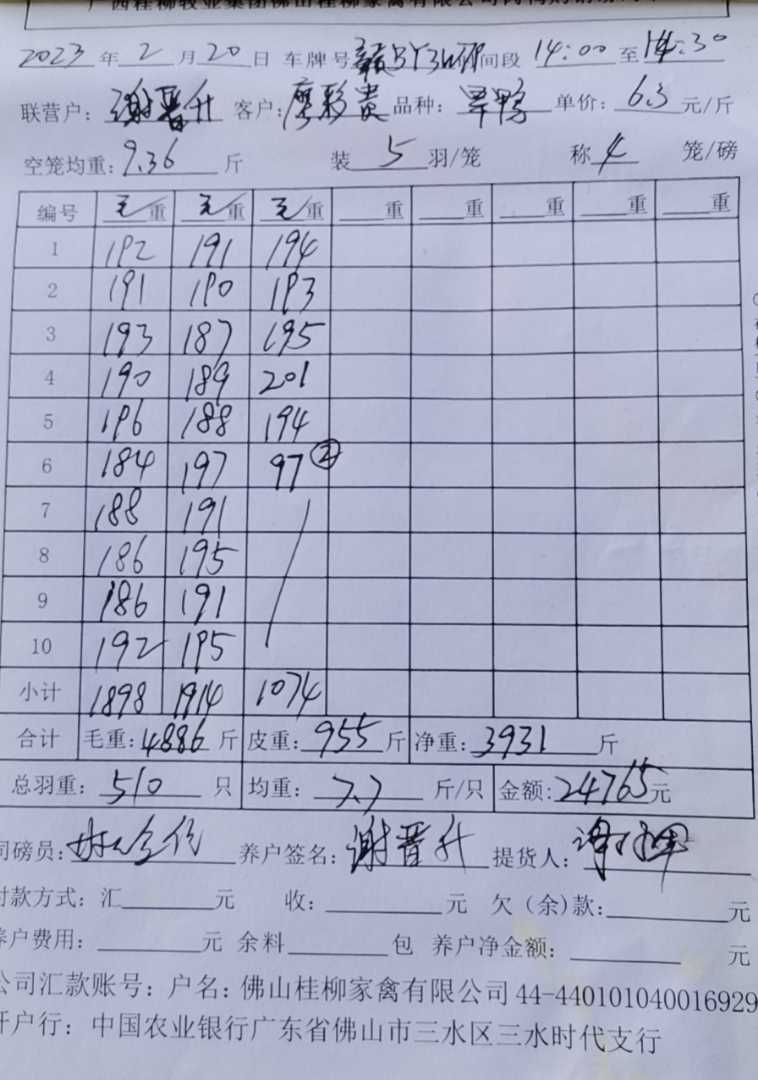 2023 年 2 月 20 日 车牌号 间段 14:00 至 14:30
联营户: 谢晋升 客户: 廖彩贵 品种: 旱鸭 单价: 6.3 元/斤
空笼均重: 9.36 斤 装 5 羽/笼 称 4 笼/磅
编号 毛重 毛重 毛重 重 重 重 重 重
1 192 191 194
2 191 190 193
3 193 187 195
4 190 189 201
5 196 188 194
6 184 197 97②
7 188 191
8 186 195
9 186 191
10 192 195
小计 1898 1914 1074
合计 毛重: 4886 斤 皮重: 955 斤 净重: 3931 斤
总羽重: 510 只 均重: 7.7 斤/只 金额: 24765 元
司磅员: 养户签名: 谢晋升 提货人:
付款方式: 汇 元 收: 元 欠(余)款: 元
养户费用: 元 余料 包 养户净金额: 元
公司汇款账号: 户名: 佛山桂柳家禽有限公司 44-440101040016929
开户行: 中国农业银行广东省佛山市三水区三水时代支行